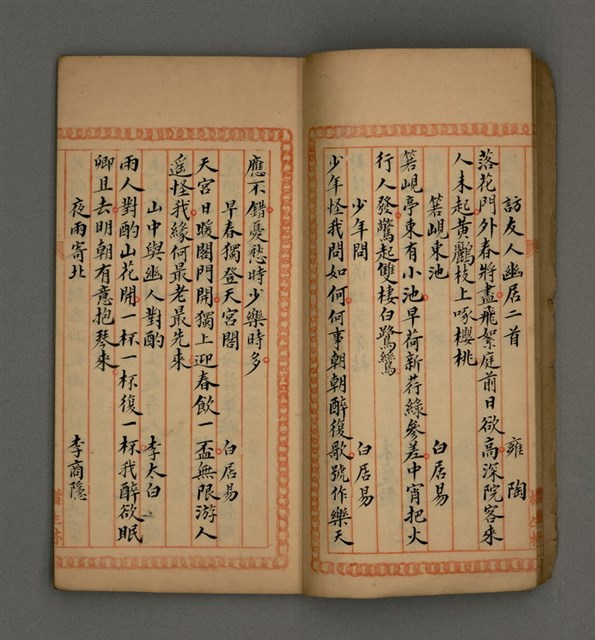 訪友人幽居二首 雍陶
落花門外春將盡飛絮庭前日欲高深院客來
人未起黃鸝枝上啄櫻桃
箬峴東池 白居易
箬峴亭東有小池早荷新荇綠參差中宵把火
行人發驚起雙棲白鷺鷥
少年問 白居易
少年怪我問如何何事朝朝醉復歌號作樂天
應不錯憂愁時少樂時多
早春獨登天宮閣 白居易
天宮日暖閣門開獨上迎春飲一盃無限游人
遥怪我緣何最老最先來
山中與幽人對酌 李太白
兩人對酌山花開一杯一杯復一杯我醉欲眠
卿且去明朝有意抱琴來
夜雨寄北 李商隱